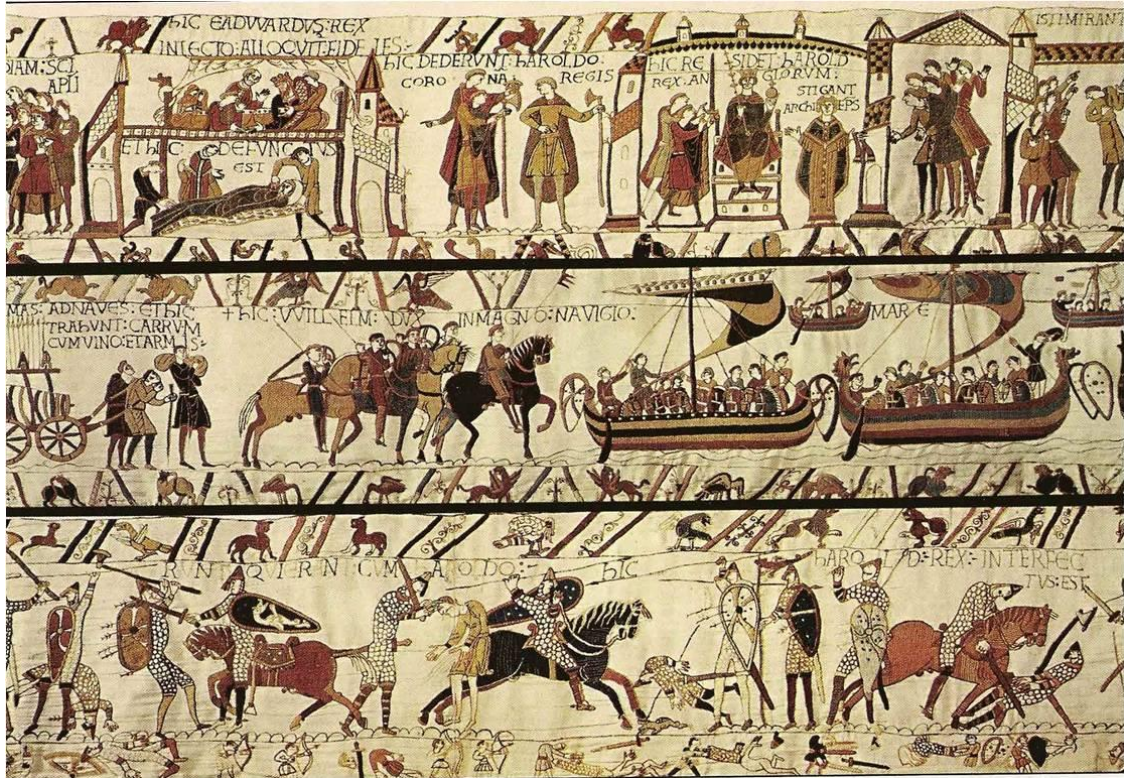 HIC EADVVARDVS: REX
IN LECTO: ALLOQVIT: FIDELES:
DIAM: SCI
APLI
ET HIC: DEFVNCTVS
EST
HIC DEDERVNT: HAROLDO:
CORO NA REGIS
HIC RE SIDET: HAROLD
REX: AN GLORVM:
STIGANT
ARCHI EPS
ISTI MIRANT
MAS: AD NAVES: ET HIC
TRAHVNT: CARRVM
CVM VINO: ET ARMIS:
+ HIC: VVILLELM: DVX IN MAGNO: NAVIGIO:
MARE
RVNT QVI ERANT CVM HAROLDO: HIC
HAROLD: REX: INTERFEC
TVS: EST